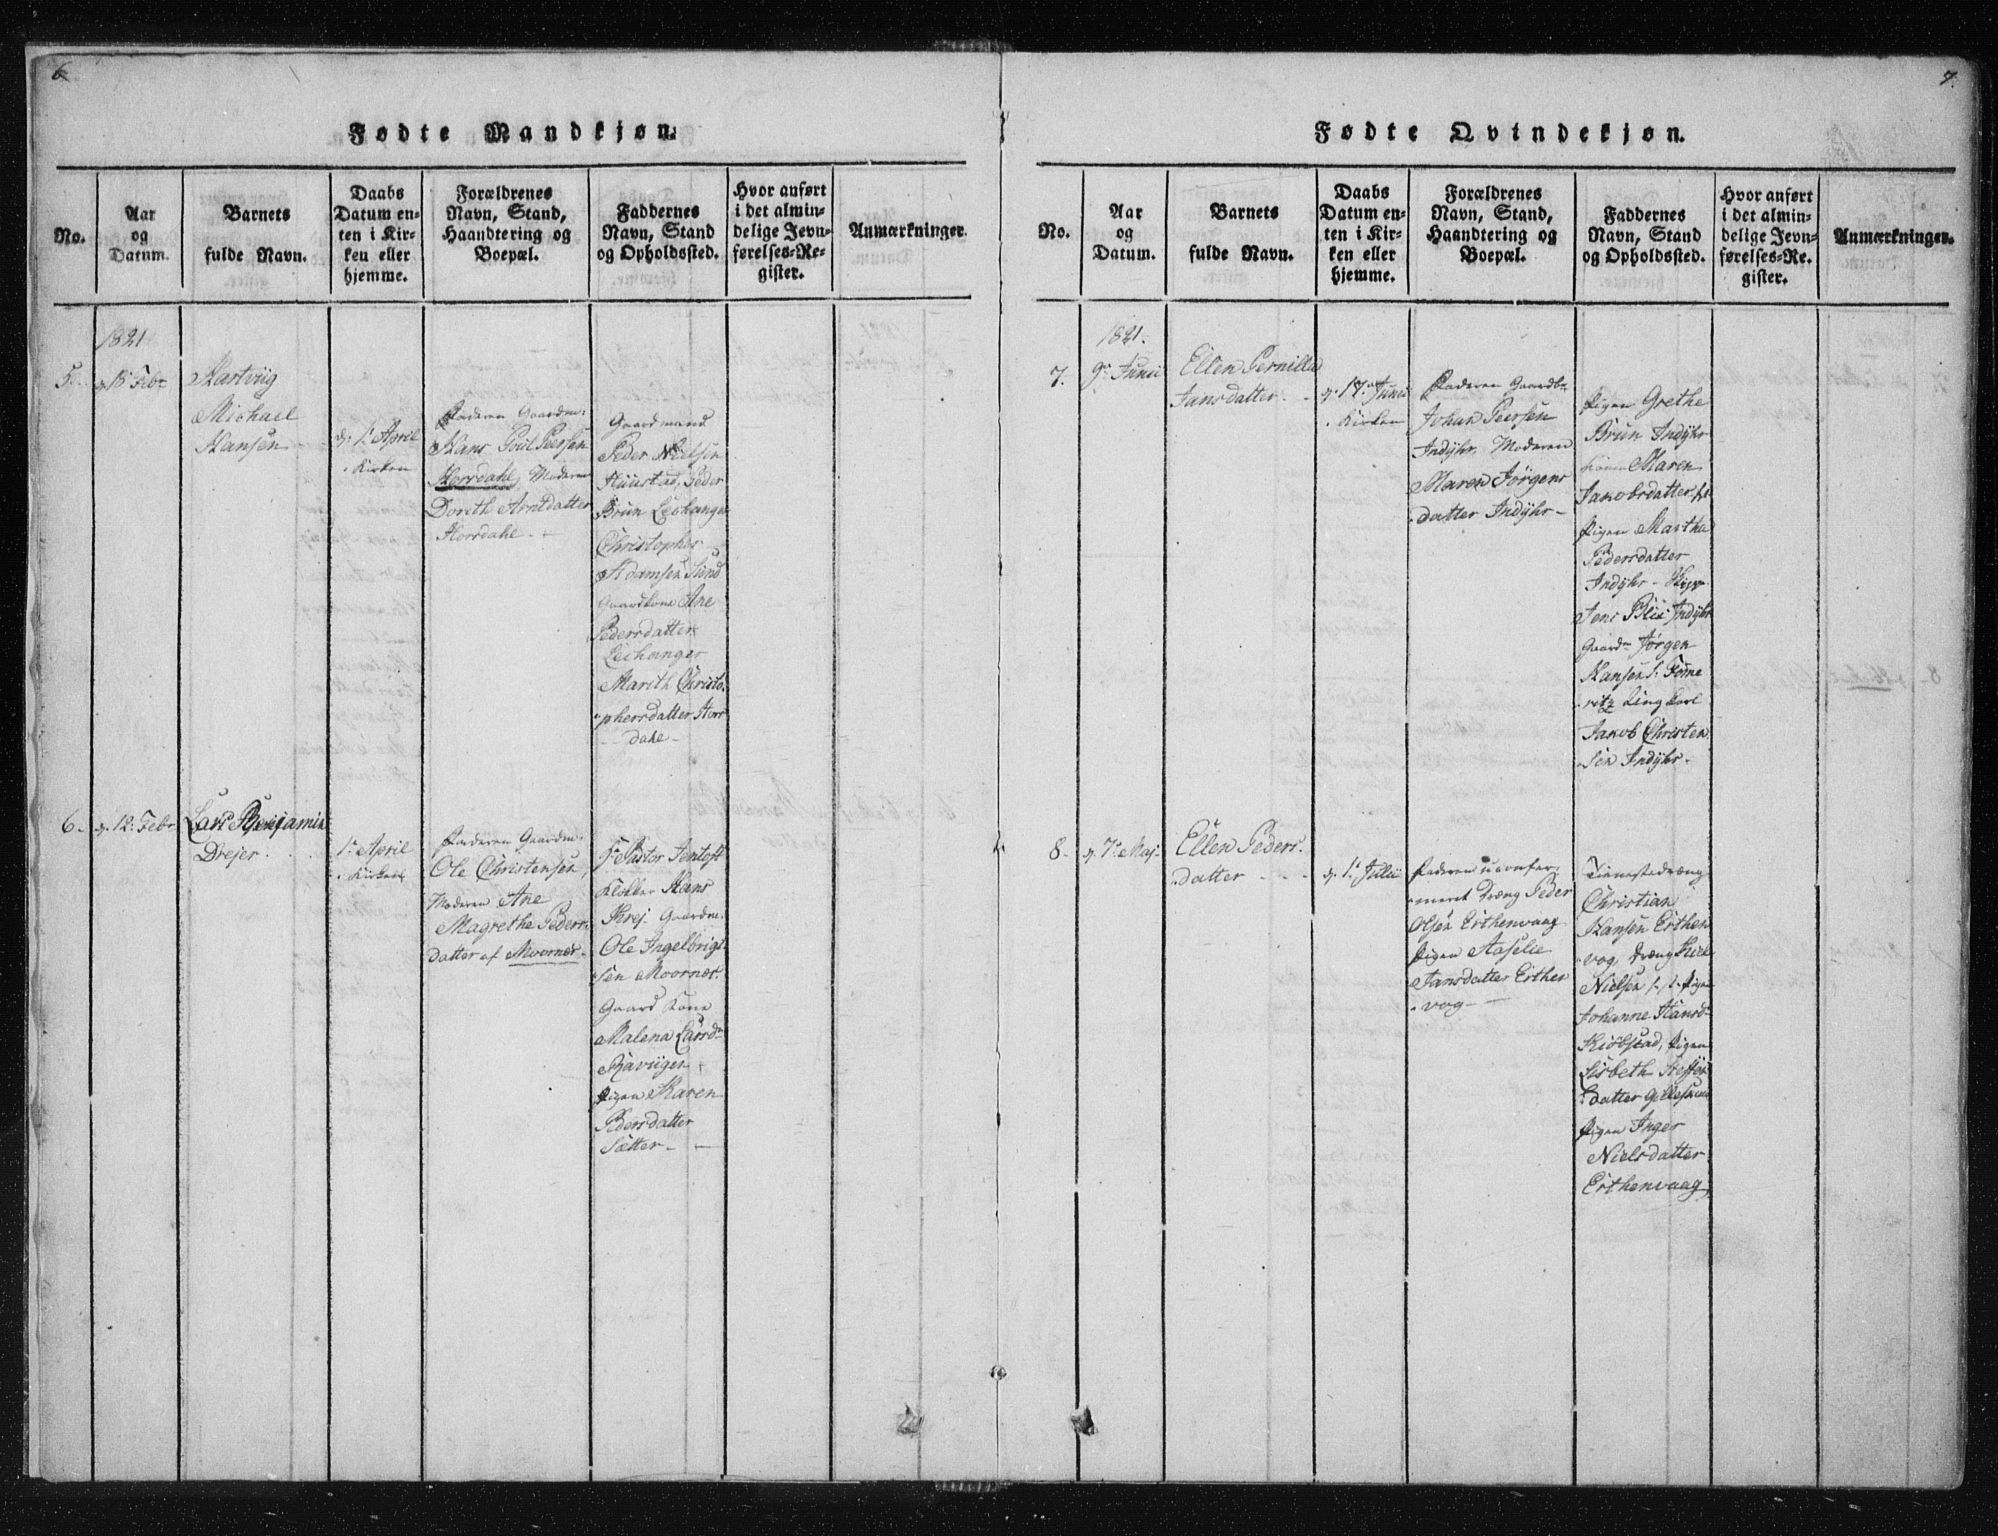 6
Fødte Mandkjøn.
No.
Aar
og
Datum.
Barnets
fulde Navn.
Daabs
Datum en-
ten i Kir-
ken eller
hjemme.
Forældrenes
Navn, Stand,
Haandtering og
Boepæl.
Faddernes
Navn, Stand
og Opholdssted.
Hvor anført
i det almin-
delige Jevn-
førelses-Re-
gister.
Anmærkninger.
1821
5.
Febr
Hartvig
Michael
Hansen
d. 1. April
i Kirken
Faderen Gaardm:
Hans Poul Peersen
Horrdahl, Moderen
Dorith Arntdatter
Horrdahl
Gaardmand
Peder Nielsen
Peder
Brun Leohanger
Christopher
Adamsen Sund
Gaardkone Ane
Pedersdatter
Leohanger
Marith Christo-
phersdatter Horr
dahl
6.
d. 12. Febr
Lars Benjamin
Drejer
1. April
i Kirken
Faderen Gaardm.
Ole Christensen,
Moderen Ane
Magrethe Peders-
datter af Moornes
Pastor Jentoft
Klokker Hans
Krej. Gaardm.
Ole Ingebrigt-
sen Moornes.
Gaard Kone
Malena Larsd.
Pigen Karen
Pedersdatter
Sætter
7.
Fødte Qvindekjøn.
No.
Aar
og
Datum.
Barnets
fulde Navn.
Daabs
Datum en-
ten i Kir-
ken eller
hjemme.
Forældrenes
Navn, Stand,
Haandtering og
Boepæl.
Faddernes
Navn, Stand
og Opholdssted.
Hvor anført
i det almin-
delige Jevn-
førelses-Re-
gister.
Anmærkninger.
1821.
7.
9. Junii
Ellen Pernilla
Jansdatter
d. 17. Junii
i Kirken
Faderen Gaardb.
Johan Peersen
Indyhr, Moderen
Maren Jørgens
datter Indyhr
Pigen Grethe
Brun Indyhr
Konen Maren
Jakobsdatter
Pigen Martha
Pedersdatter
Indyhr
Jens Indyhr
Gaardm Jørgen
Hansen
Ungkarl
Jakob Christen
sen Indyhr
8.
d. 7. Maj
Ellen Peders
datter
d. 1. Julii
Faderen uconfer-
meret Dræng Peder
Olsen Erthenvaag
Pigen
Jansdatter Erthen
vog
Tienestedræng
Christian
Hansen Erthen
vog, Dræng
Nielsen Pigen
Johanne Hansd.
Kiøbstad, Pigen
Lisbeth
datter
Pigen Inger
Nielsdatter
Erthenvaag